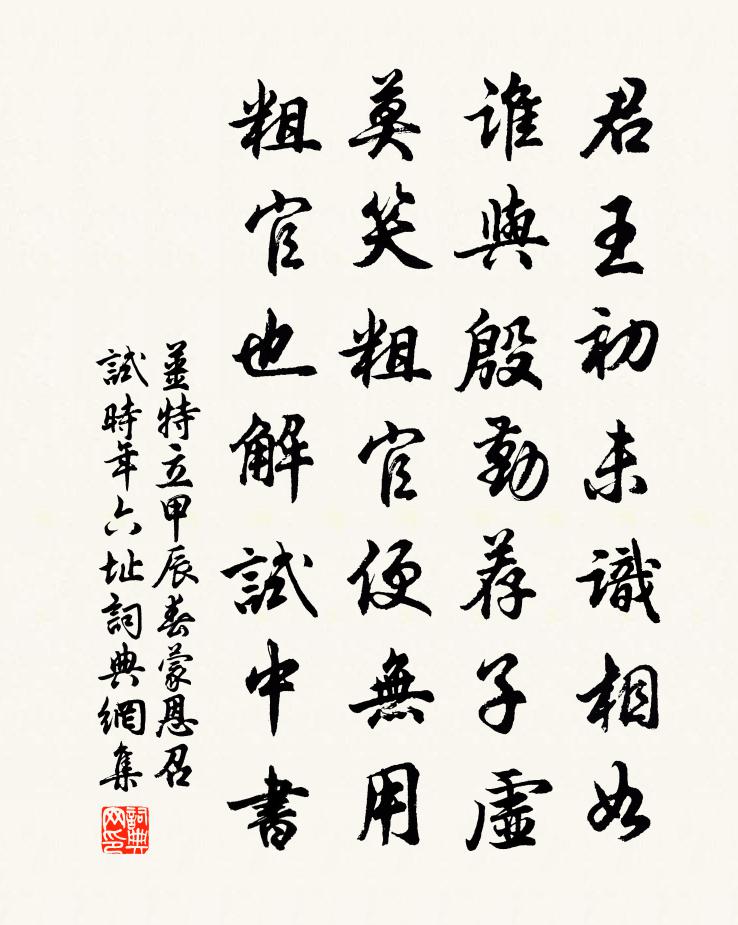 君王初未識相如
誰與殷勤荐子虛
莫笑粗官便無用
粗官也解試中書
姜特立甲辰春蒙恩召
試時年六址詞典網集
詞典
网印